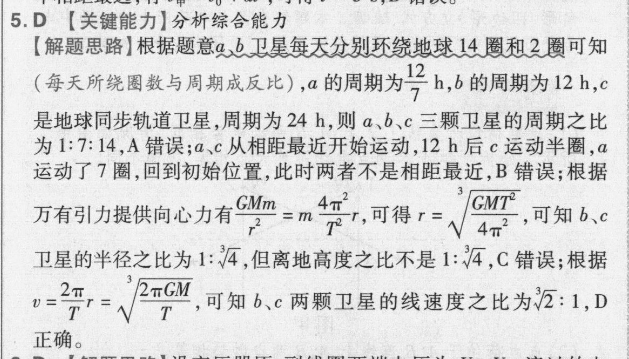 5. D 【关键能力】分析综合能力
【解题思路】根据题意a、b卫星每天分别环绕地球 14 圈和 2 圈可知
(每天所绕圈数与周期成反比),a 的周期为12/7 h,b 的周期为 12 h,c
是地球同步轨道卫星,周期为 24 h,则 a、b、c 三颗卫星的周期之比
为 1:7:14,A 错误;a、c 从相距最近开始运动,12 h 后 c 运动半圈,a
运动了 7 圈,回到初始位置,此时两者不是相距最近,B 错误;根据
万有引力提供向心力有GMm/r² = m 4π²/T² r,可得 r = ∛(GMT²/4π²),可知 b、c
卫星的半径之比为 1:∛4,但离地高度之比不是 1:∛4,C 错误;根据
v = 2π/T r = ∛(2πGM/T),可知 b、c 两颗卫星的线速度之比为∛2 : 1,D
正确。